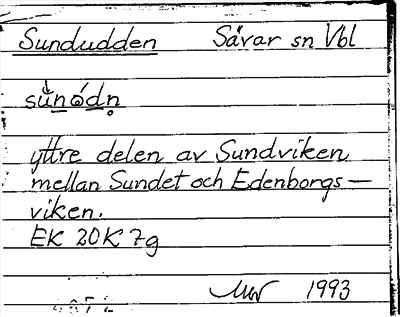 Sundudden Sävar sn Vbl
yttre delen av Sundviken
mellan Sundet och Edenborgs-
viken.
EK 20K 7g
1993